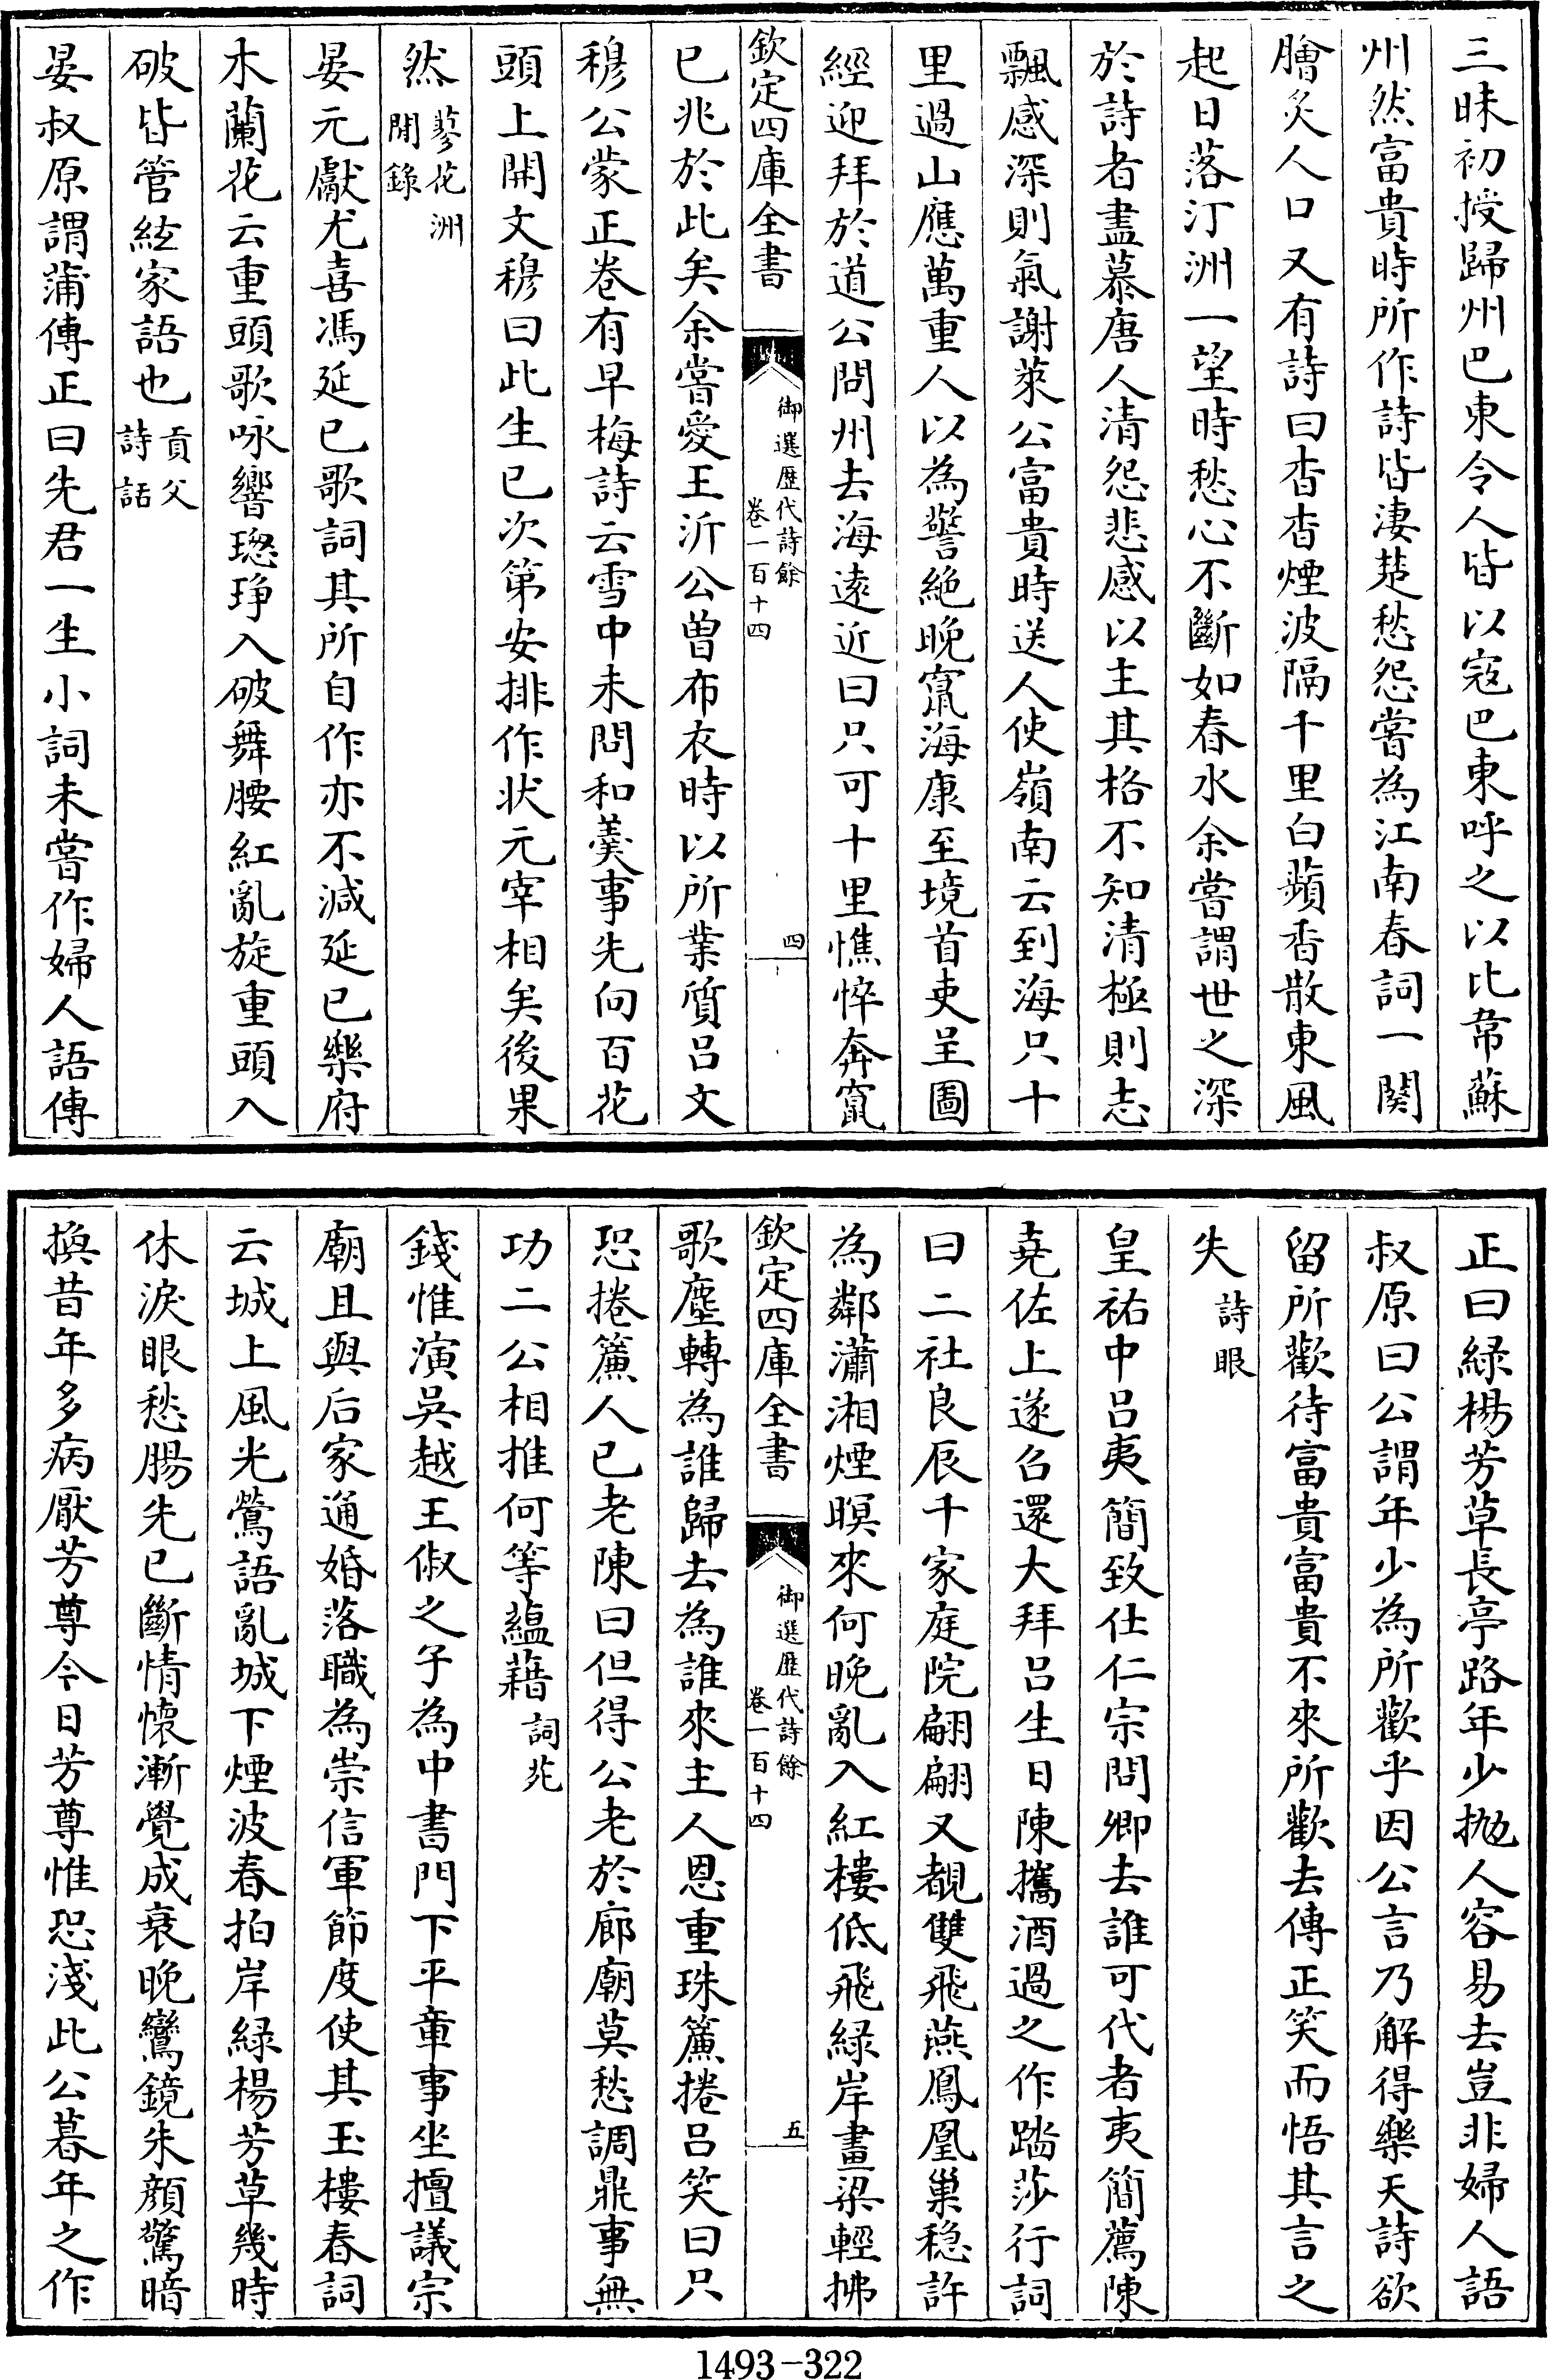 三昧初授歸州巴東令人皆以寇巴東呼之以比韋蘇
州然富貴時所作詩皆淒楚愁怨嘗為江南春詞一闋
膾炙人口又有詩曰杳杳煙波隔千里白蘋香散東風
起日落汀洲一望時愁心不斷如春水余嘗謂世之深
於詩者盡慕唐人清怨悲感以主其格不知清極則志
飄感深則氣謝萊公富貴時送人使嶺南云到海只十
里過山應萬重人以為警絶晚竄海康至境首吏呈圖
經迎拜於道公問州去海逺近曰只可十里憔悴奔竄
欽定四庫全書
御選歴代詩餘
卷一百十四
四
已兆於此矣余嘗愛王沂公曽布衣時以所業質吕文
穆公蒙正卷有早梅詩云雪中未問和羮事先向百花
頭上開文穆曰此生已次第安排作狀元宰相矣後果
然蓼花洲
閒錄
晏元獻尤喜馮延已歌詞其所自作亦不減延已樂府
木蘭花云重頭歌咏響璁琤入破舞腰紅亂旋重頭入
破皆管絃家語也貢父
詩話
晏叔原謂蒲傳正曰先君一生小詞未嘗作婦人語傳
正曰緑楊芳草長亭路年少抛人容易去豈非婦人語
叔原曰公謂年少為所歡乎因公言乃解得樂天詩欲
留所歡待富貴富貴不來所歡去傳正笑而悟其言之
失詩眼
皇祐中吕夷簡致仕仁宗問卿去誰可代者夷簡薦陳
堯佐上遂召還大拜吕生日陳攜酒過之作踏莎行詞
曰二社良辰千家庭院翩翩又覩雙飛燕鳳凰巢穏許
為鄰瀟湘煙暝來何晚亂入紅樓低飛緑岸畫梁輕拂
欽定四庫全書
御選歴代詩餘
卷一百十四
五
歌塵轉為誰歸去為誰來主人恩重珠簾捲吕笑曰只
恐捲簾人已老陳曰但得公老於廊廟莫愁調鼎事無
功二公相推何等蘊藉詞苑
錢惟演吳越王俶之子為中書門下平章事坐擅議宗
廟且與后家通婚落職為崇信軍節度使其玉樓春詞
云城上風光鶯語亂城下煙波春拍岸緑楊芳草幾時
休淚眼愁腸先已斷情懷漸覺成衰晚鸞鏡朱顔驚暗
換昔年多病厭芳尊今日芳尊惟恐淺此公暮年之作
1493-322